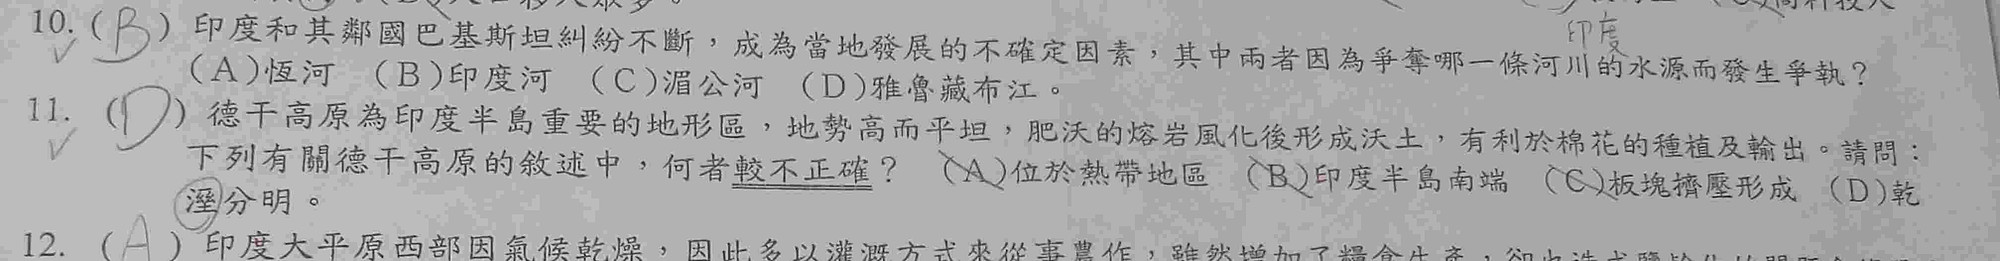 10. (B) 印度和其鄰國巴基斯坦糾紛不斷，成為當地發展的不確定因素，其中兩者因為爭奪哪一條河川的水源而發生爭執？
印度
(A)恆河 (B)印度河 (C)湄公河 (D)雅魯藏布江。
11. (D) 德干高原為印度半島重要的地形區，地勢高而平坦，肥沃的熔岩風化後形成沃土，有利於棉花的種植及輸出。請問：
下列有關德干高原的敘述中，何者較不正確？ (A)位於熱帶地區 (B)印度半島南端 (C)板塊擠壓形成 (D)乾
溼分明。
12. (A) 印度大平原西部因氣候乾燥，因此多以灌溉方式來從事農作，雖然增加了糧食生產，卻也造成